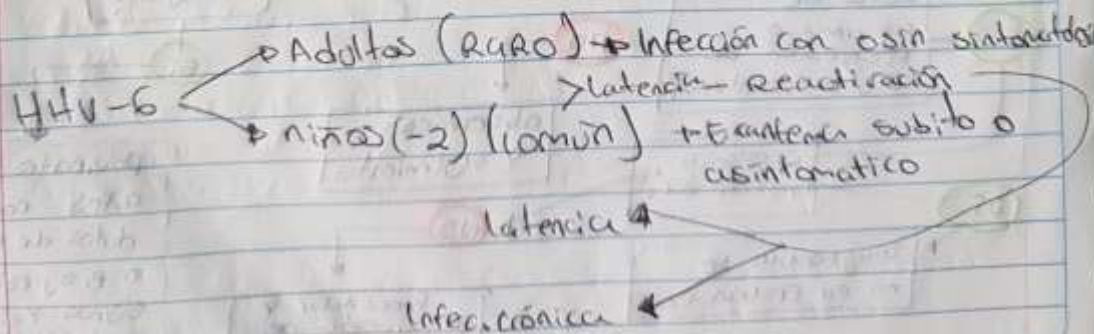 Adultos (RARO) → Infección con o sin sintomatología
HHV-6
>latencia - Reactivación
niños (-2) (común) → Exantema subito o
asintomatico
latencia
Infec. crónica